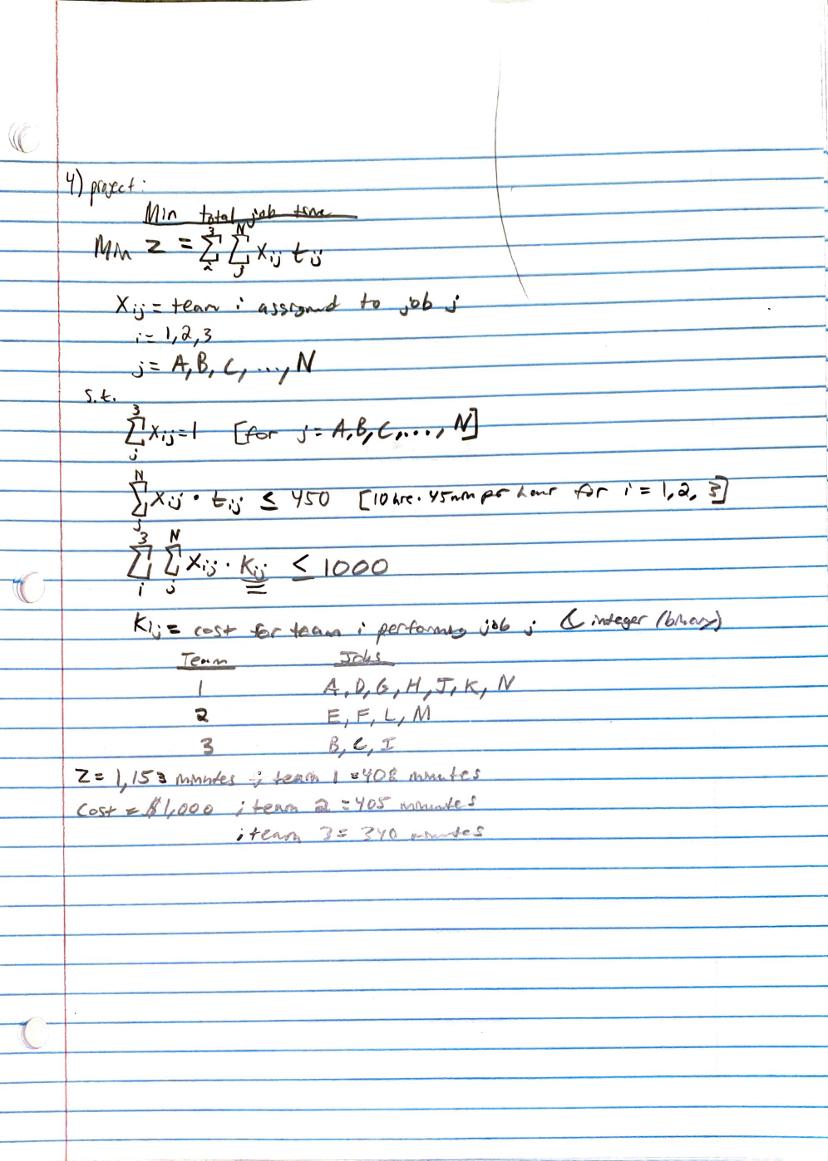 4) project:
Min total job time
Min Z = Σ_i^3 Σ_j^N X_ij t_ij
X_ij = team i assigned to job j
i = 1,2,3
j = A, B, C, ..., N
s.t.
Σ_j^3 X_ij = 1 [for j = A, B, C, ..., N]
Σ_j^N X_ij · t_ij ≤ 450 [10 hrs · 45 min per hour for i = 1, 2, 3]
Σ_i^3 Σ_j^N X_ij · K_ij ≤ 1000
K_ij = cost for team i performing job j & integer (binary)
Team Jobs
1 A, D, G, H, J, K, N
2 E, F, L, M
3 B, C, I
Z = 1,153 minutes ; team 1 = 408 minutes
Cost = $1,000 ; team 2 = 405 minutes
; team 3 = 340 minutes